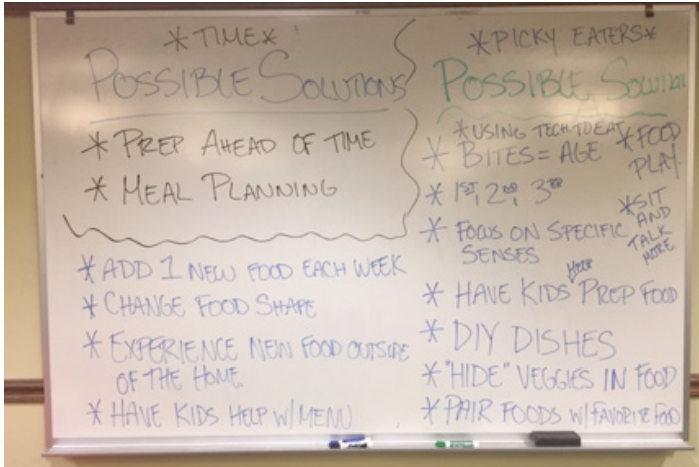 *TIME*
POSSIBLE SOLUTIONS
* PREP AHEAD OF TIME
* MEAL PLANNING
* ADD 1 NEW FOOD EACH WEEK
* CHANGE FOOD SHAPE
* EXPERIENCE NEW FOOD OUTSIDE
OF THE HOME.
* HAVE KIDS HELP W/ MENU
*PICKY EATERS*
POSSIBLE SOLUTION
*USING TECH TO EAT
* BITES = AGE
* 1ST, 2ND, 3RD
* FOCUS ON SPECIFIC
SENSES
*FOOD
PLAY
*SIT
AND
TALK
MORE
* HAVE KIDS HELP PREP FOOD
* DIY DISHES
* "HIDE" VEGGIES IN FOOD
* PAIR FOODS W/ FAVORITE FOOD